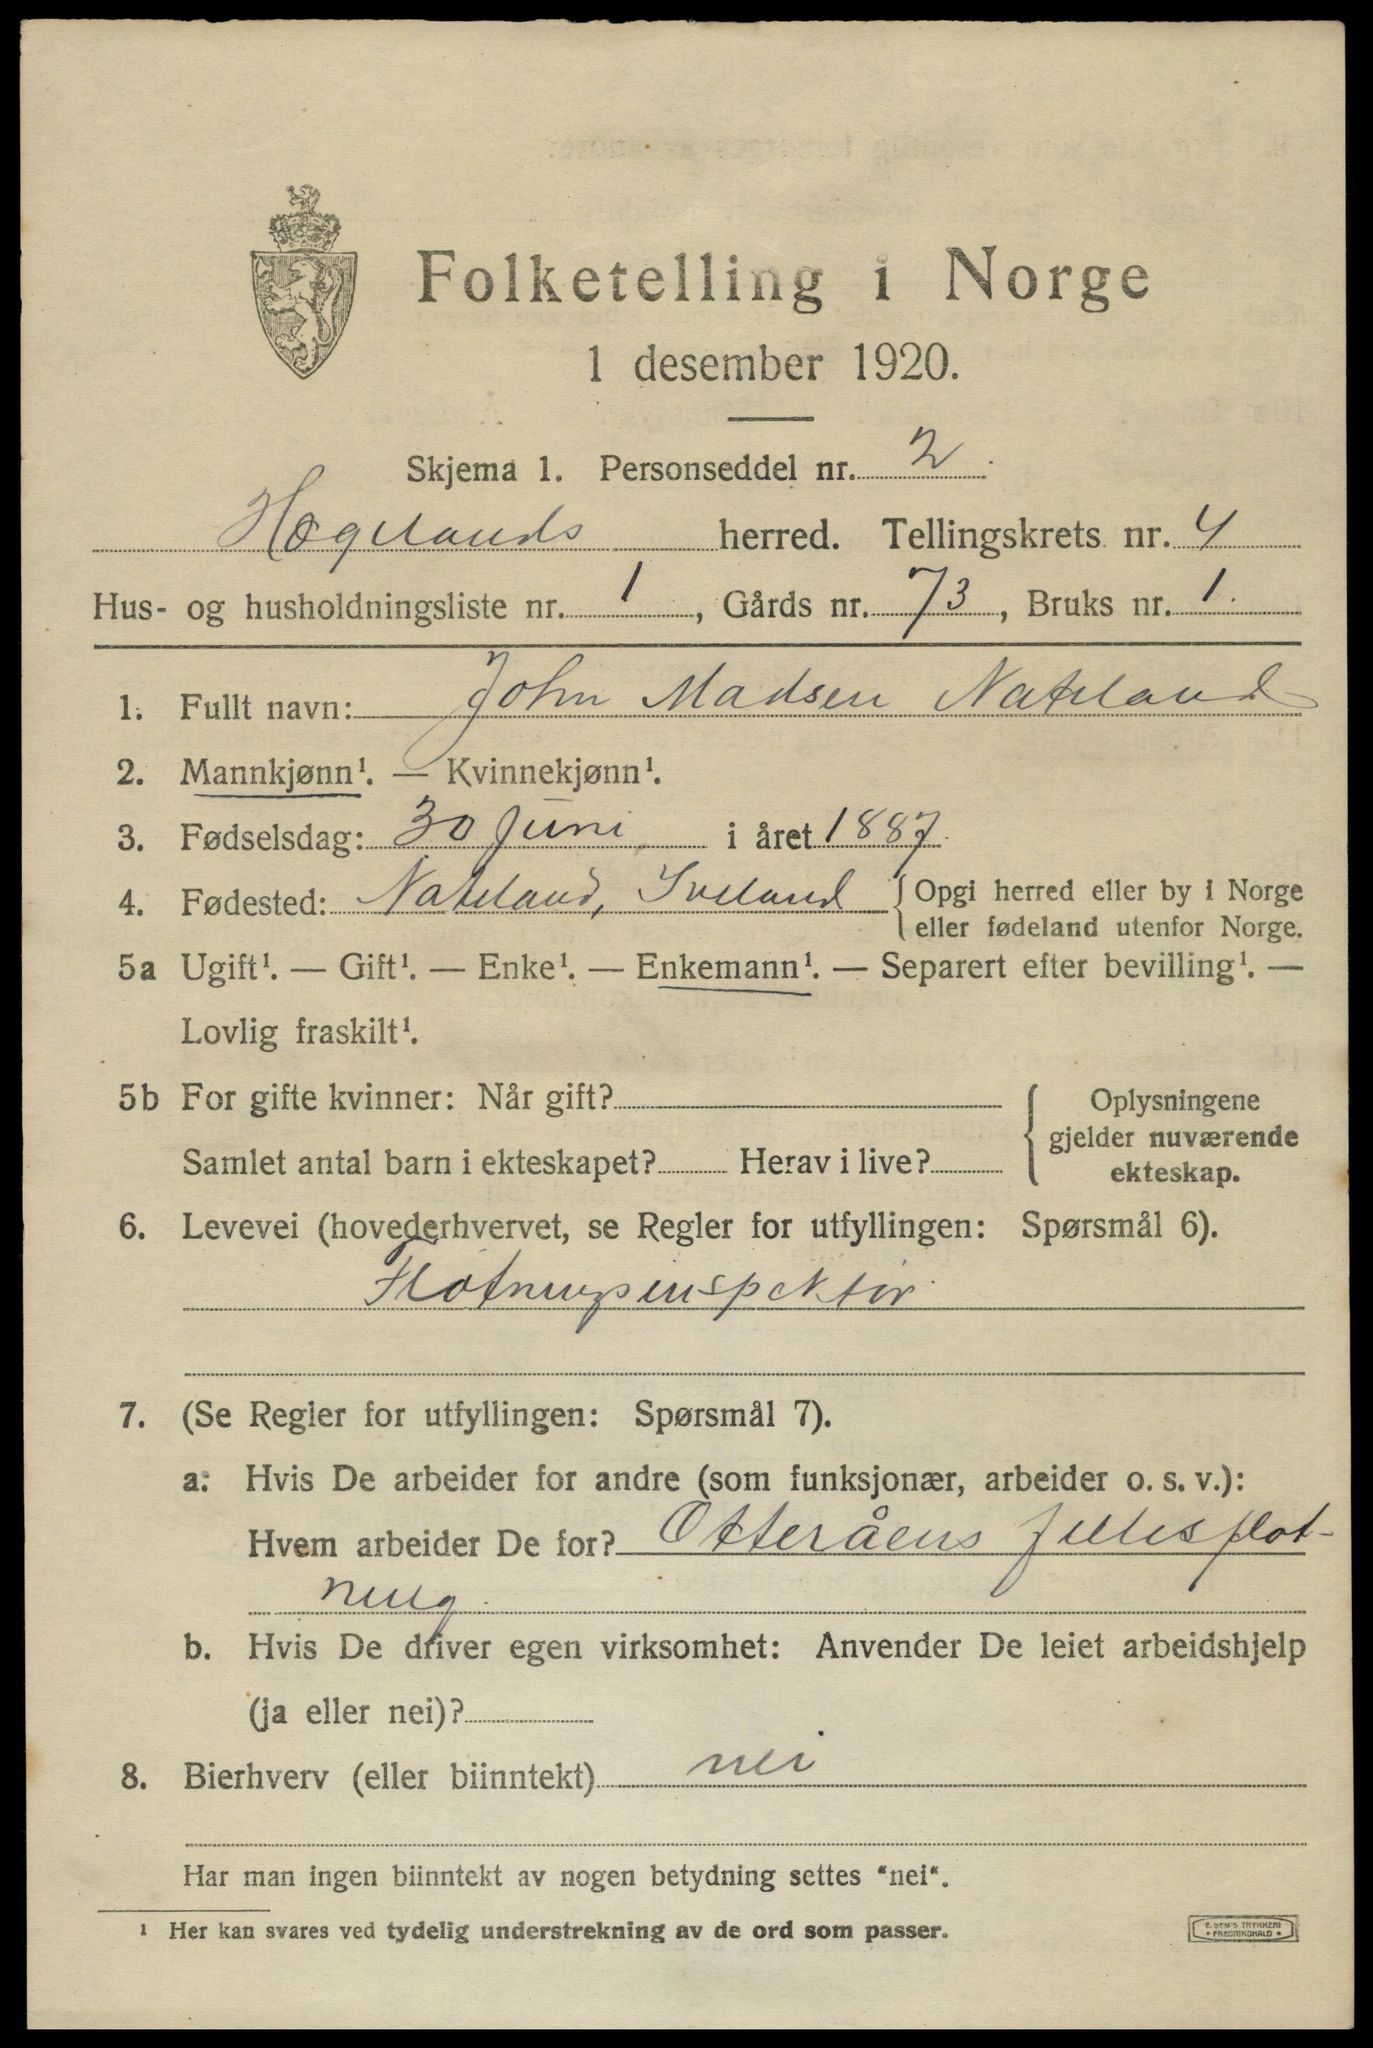 Folketelling i Norge
1 desember 1920.
Skjema 1. Personseddel nr. 2.
Hægelands herred. Tellingskrets nr. 4
Hus- og husholdningsliste nr. 1, Gårds nr. 73, Bruks nr. 1.
1. Fullt navn: John Madsen Nateland
2. Mannkjønn¹. — Kvinnekjønn¹.
3. Fødselsdag: 30 juni i året 1887.
4. Fødested: Nateland, Iveland { Opgi herred eller by i Norge
eller fødeland utenfor Norge.
5a Ugift¹. — Gift¹. — Enke¹. — Enkemann¹. — Separert efter bevilling¹. —
Lovlig fraskilt¹.
5b For gifte kvinner: Når gift? { Oplysningene
gjelder nuværende
Samlet antal barn i ekteskapet? Herav i live?
ekteskap.
6. Levevei (hovederhvervet, se Regler for utfyllingen: Spørsmål 6).
Fløtningsinspektør.
7. (Se Regler for utfyllingen: Spørsmål 7).
a: Hvis De arbeider for andre (som funksjonær, arbeider o. s. v.):
Hvem arbeider De for? Otteråens fellesfløt-
ning.
b. Hvis De driver egen virksomhet: Anvender De leiet arbeidshjelp
(ja eller nei)?
8. Bierhverv (eller biinntekt) nei
Har man ingen biinntekt av nogen betydning settes "nei".
¹ Her kan svares ved tydelig understrekning av de ord som passer.
E. SEM'S TRYKKERI
• FREDRIKSHALD •